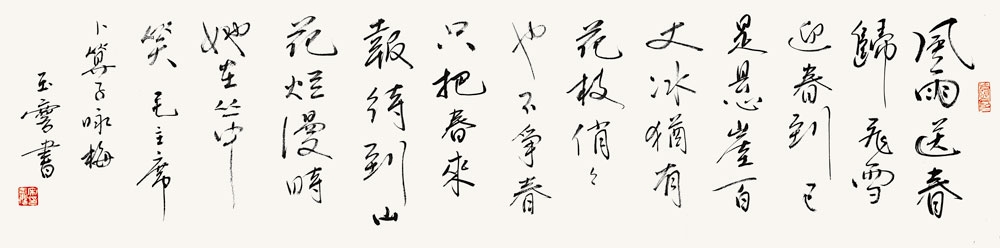 風雨送春
歸飛雪
迎春到已
是懸崖百
丈冰猶有
花枝俏々
也不爭春
只把春來
報待到山
花烂漫時
她在丛中
笑 毛主席
卜算子咏梅
書